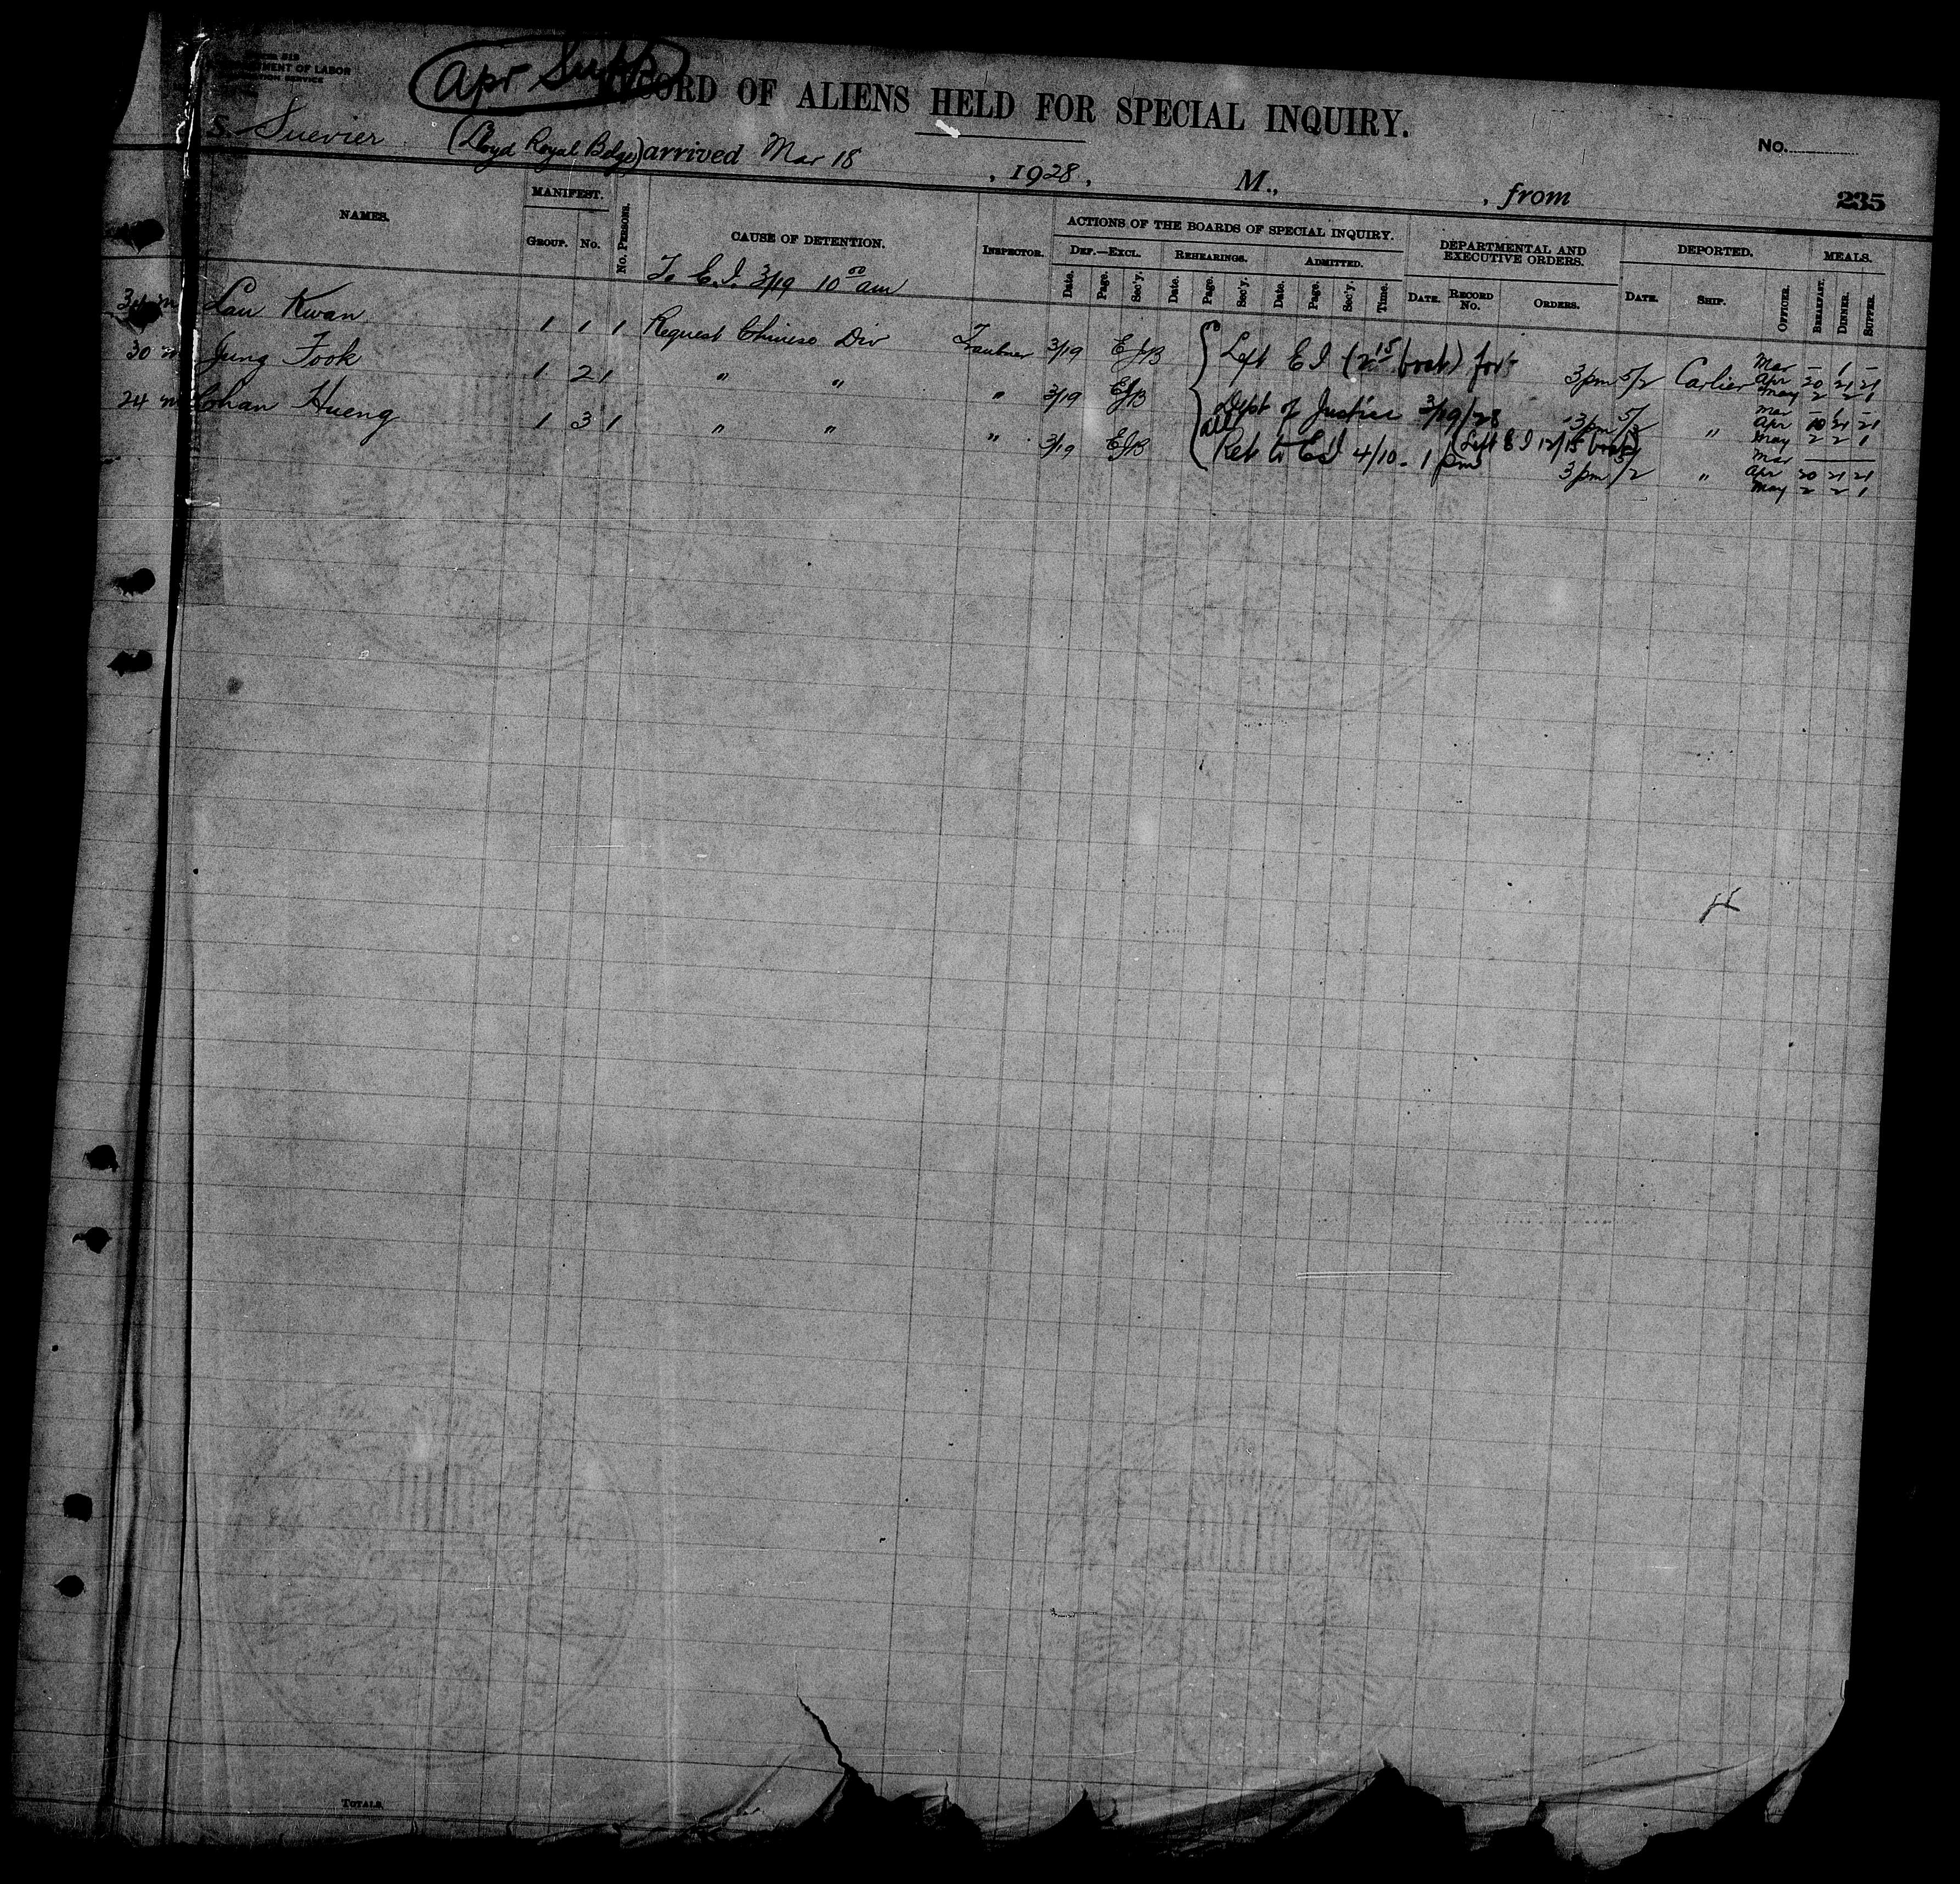 Apr Supp
519
MENT OF LABOR
RECORD OF ALIENS HELD FOR SPECIAL INQUIRY.
S. Suevier (Lloyd Royal Belge) arrived Mar 18, 1928, M., , from
No.
235
NAMES.
MANIFEST.
GROUP. No.
No. PERSONS.
CAUSE OF DETENTION.
INSPECTOR.
ACTIONS OF THE BOARDS OF SPECIAL INQUIRY.
DEF.—EXCL. REHEARINGS. ADMITTED.
Date. Page. Sec'y. Date. Page. Sec'y. Date. Page. Sec'y. Time.
DEPARTMENTAL AND EXECUTIVE ORDERS.
DATE. RECORD No. ORDERS.
DEPORTED.
DATE. SHIP. OFFICER.
MEALS.
BREAKFAST. DINNER. SUPPER.
To E.I. 3/19 10 00 am
Lau Kwan 1 1 1 Request Chinese Div 3/19 EJB Left E I (2 15 boat) for 3 pm 5/2 Carlier Mar – 1 –
Apr 20 21 21
May 2 2 1
30 m Jung Fook 1 2 1 " " " 3/19 EJB Dept of Justice 3/19/28 3 pm 5/2 " Mar – 1 –
Apr 21 21
May 2 2 1
24 m Chan Hueng 1 3 1 " " " 3/19 EJB all Ret to E I 4/10 - 1 pm (Left E I 12/15 boat) 3 pm 5/2 " Mar
Apr 20 21 21
May 2 2 1
TOTALS.